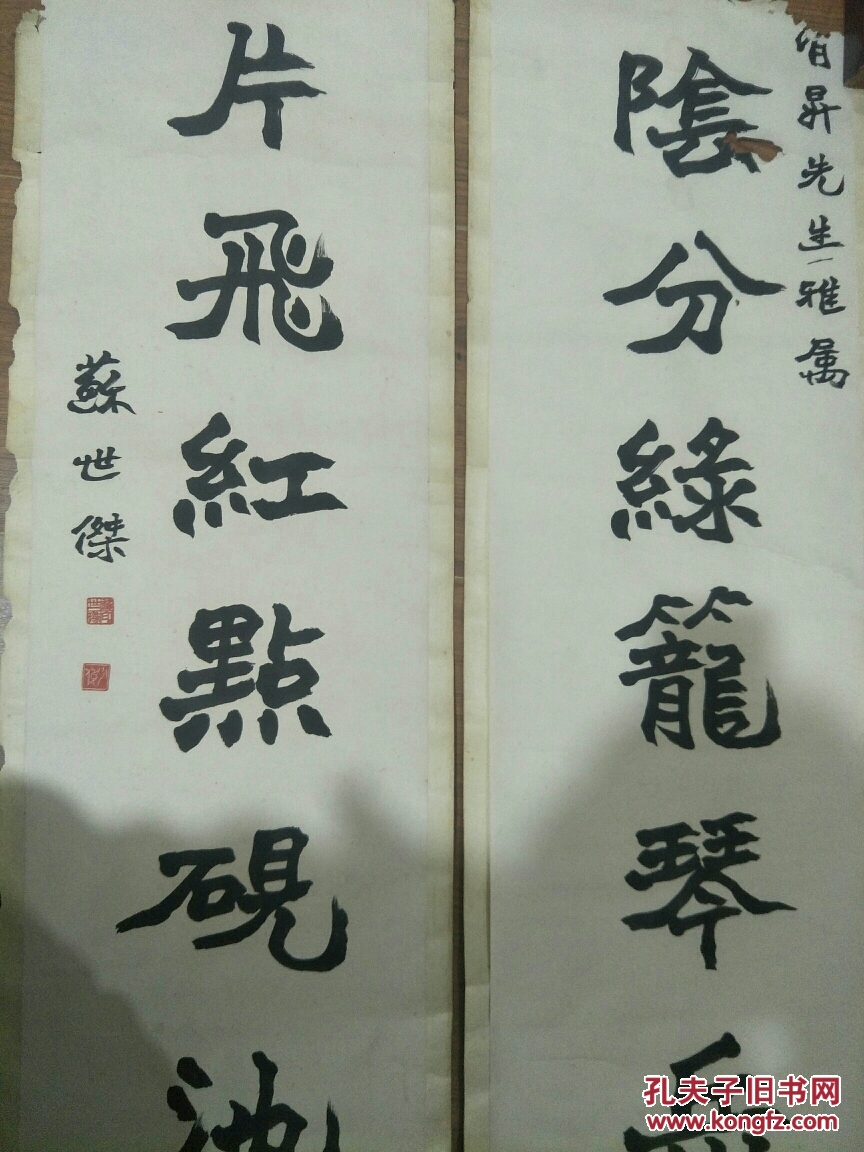 昇先生雅属
陰分綠籠琴
片飛紅點硯池
蘇世傑
孔夫子旧书网
www.kongfz.com